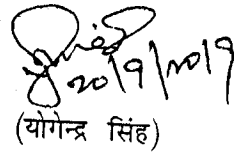 20/9/2019
(योगेन्द्र सिंह)